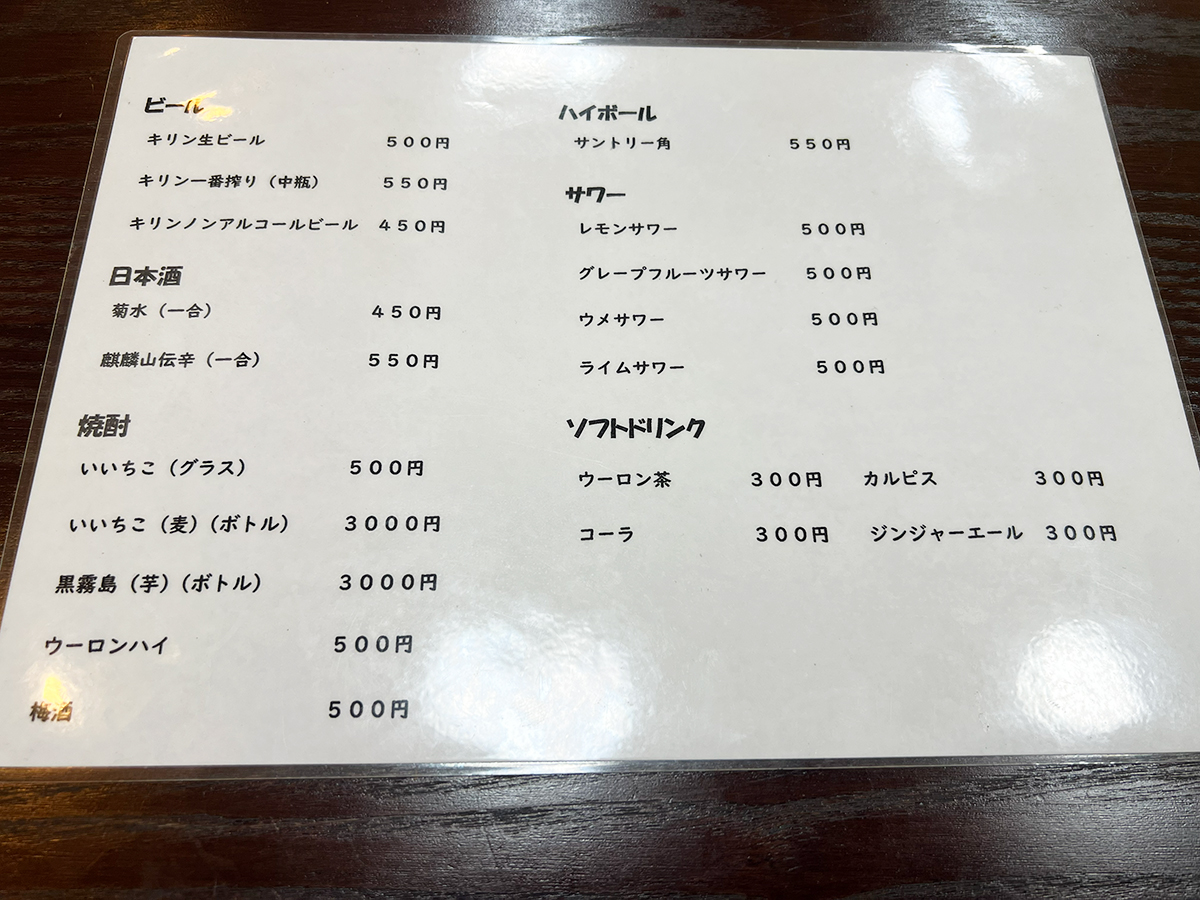 ビール
キリン生ビール ５００円
キリン一番搾り（中瓶） ５５０円
キリンノンアルコールビール ４５０円
日本酒
菊水（一合） ４５０円
麒麟山伝辛（一合） ５５０円
焼酎
いいちこ（グラス） ５００円
いいちこ（麦）（ボトル） ３０００円
黒霧島（芋）（ボトル） ３０００円
ウーロンハイ ５００円
梅酒 ５００円
ハイボール
サントリー角 ５５０円
サワー
レモンサワー ５００円
グレープフルーツサワー ５００円
ウメサワー ５００円
ライムサワー ５００円
ソフトドリンク
ウーロン茶 ３００円 カルピス ３００円
コーラ ３００円 ジンジャーエール ３００円